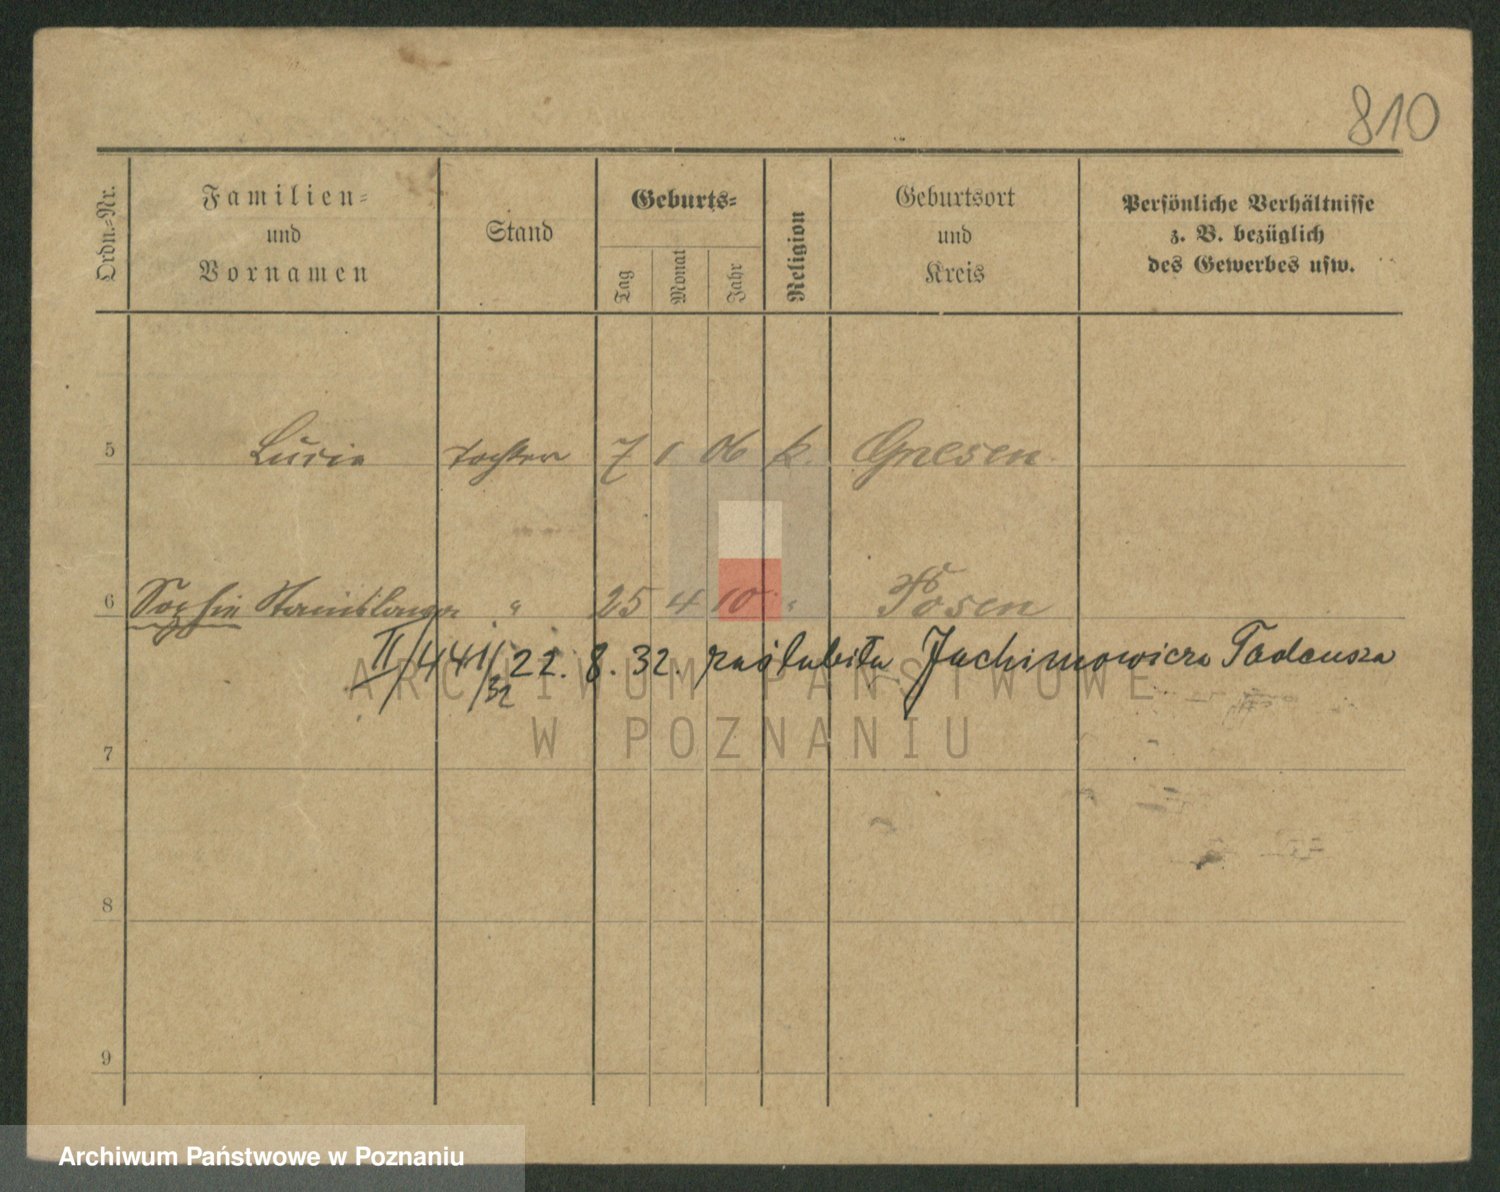 810
Ordn.-Nr.
Familien-
und
Vornamen
Stand
Geburts-
Tag
Monat
Jahr
Religion
Geburtsort
und
Kreis
Persönliche Verhältnisse
z. B. bezüglich
des Gewerbes usw.
5 Lucie Tochter 7 1 06 k. Gnesen
6 Sophie Stanislawa " 25 4 10 " Posen
II/441/32 22. 8. 32. zaślubiła Jachimowicza Tadeusza
ARCHIWUM PAŃSTWOWE
W POZNANIU
7
8
9
Archiwum Państwowe w Poznaniu